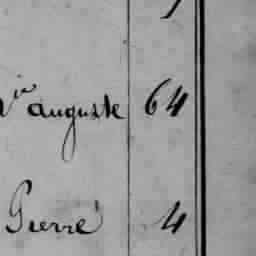 auguste 64
Pierre 4